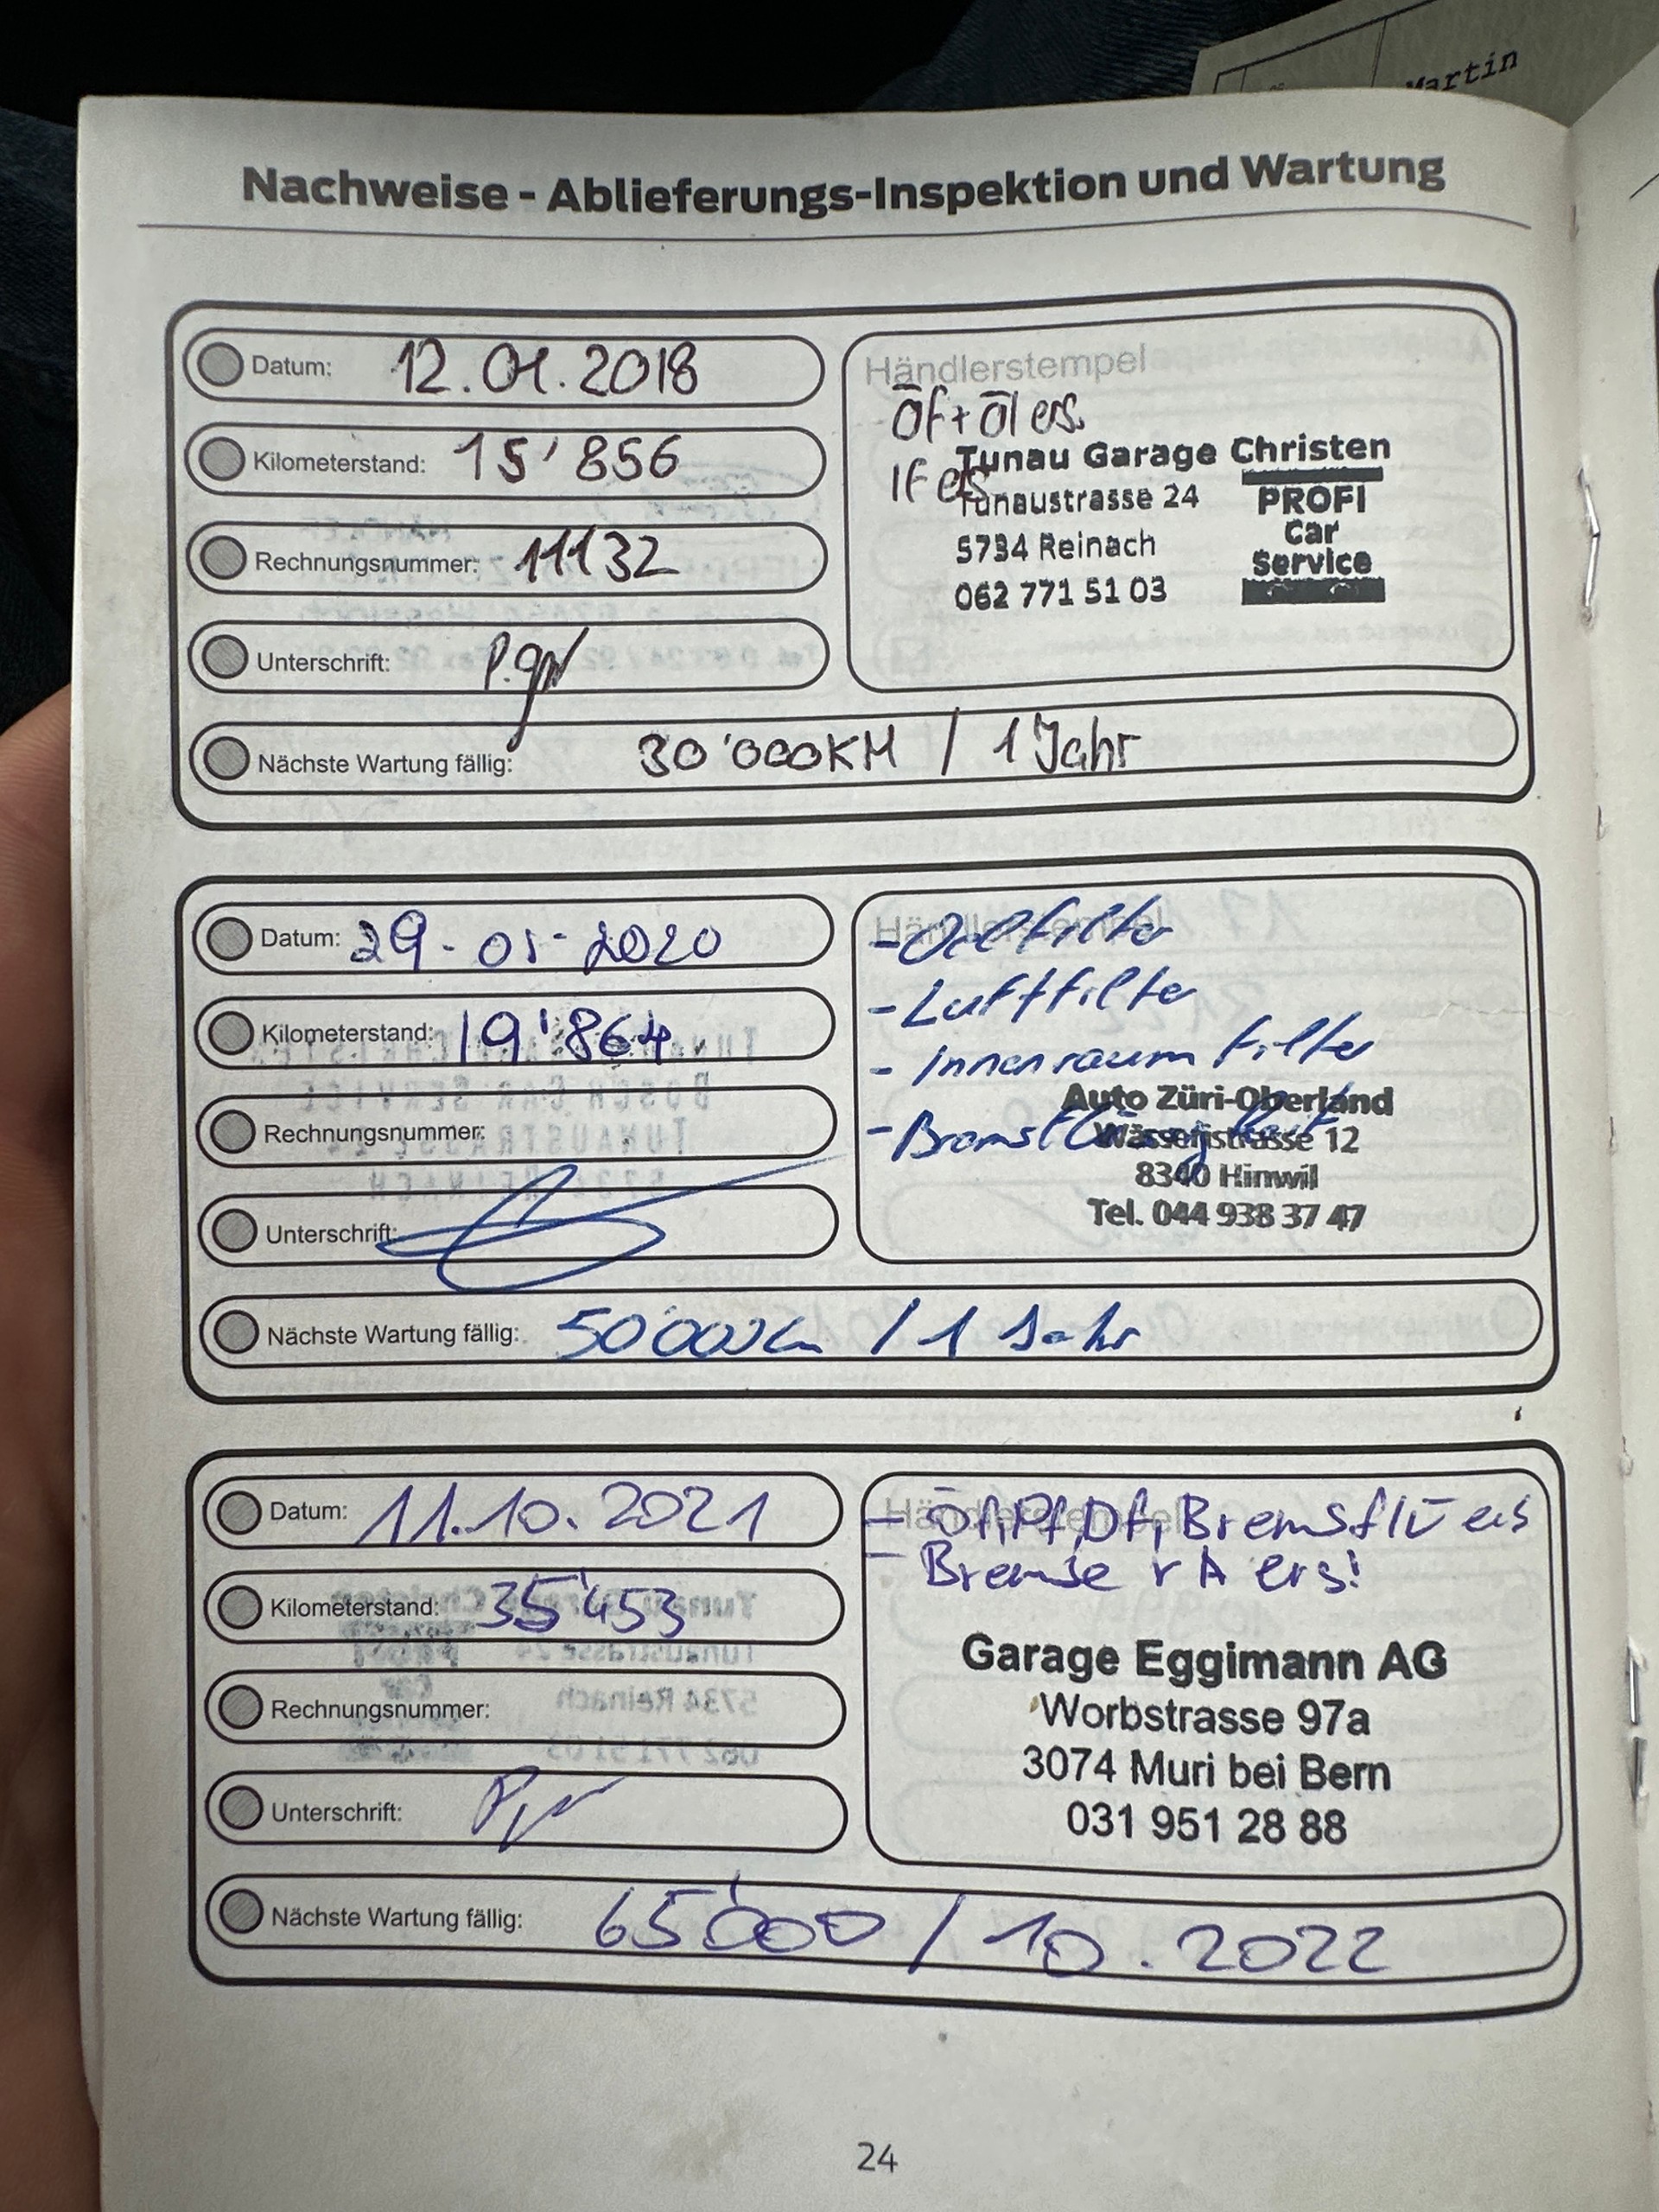 Martin
Nachweise - Ablieferungs-Inspektion und Wartung
Datum: 12.01.2018
Kilometerstand: 15'856
Rechnungsnummer: 11132
Unterschrift:
Nächste Wartung fällig: 30'000KM / 1 Jahr
Händlerstempel
Öf + Öl ers.
IF ers
Tunau Garage Christen
Tunaustrasse 24
5734 Reinach
062 771 51 03
PROFI
Car
Service
Datum: 29.05.2020
Kilometerstand: 19'864
Rechnungsnummer:
Unterschrift:
Nächste Wartung fällig: 50'000km / 1 Jahr
Händlerstempel
- Oelfilter
- Luftfilter
- Innenraum filter
- Bremsflüssigkeit
Auto Züri-Oberland
Wässeristrasse 12
8340 Hinwil
Tel. 044 938 37 47
Datum: 11.10.2021
Kilometerstand: 35'453
Rechnungsnummer:
Unterschrift:
Nächste Wartung fällig: 65'000 / 10.2022
Händlerstempel
- Öf, Pf, Df, Bremsflü ers
- Bremse v A ers!
Garage Eggimann AG
Worbstrasse 97a
3074 Muri bei Bern
031 951 28 88
24